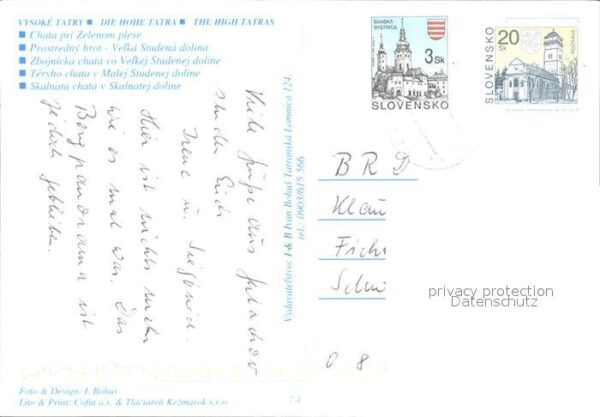 VYSOKÉ TATRY ■ DIE HOHE TATRA ■ THE HIGH TATRAS
■ Chata pri Zelenom plese
■ Prostredný hrot - Veľká Studená dolina
■ Zbojnícka chata vo Veľkej Studenej doline
■ Téryho chata v Malej Studenej doline
■ Skalnatá chata v Skalnatej doline
BANSKÁ
BYSTRICA
3 Sk
SLOVENSKO
20 Sk
SLOVENSKO
ROŽŇAVA
Viele Grüße aus
senden Euch
Irene u. Siegfried.
Hier ist nichts mehr
wie es mal war. Das
Bergpanorama ist
jedoch geblieben.
Vydavateľstvo: I & B Ivan Bohuš Tatranská Lomnica 124,
tel.: 0903/615 566
BRD
Klau
Fich
privacy protection
Datenschutz
0 8
Foto & Design: I. Bohuš
Lito & Print: Cofin a.s. & Tlačiareň Kežmarok s.r.o.
74